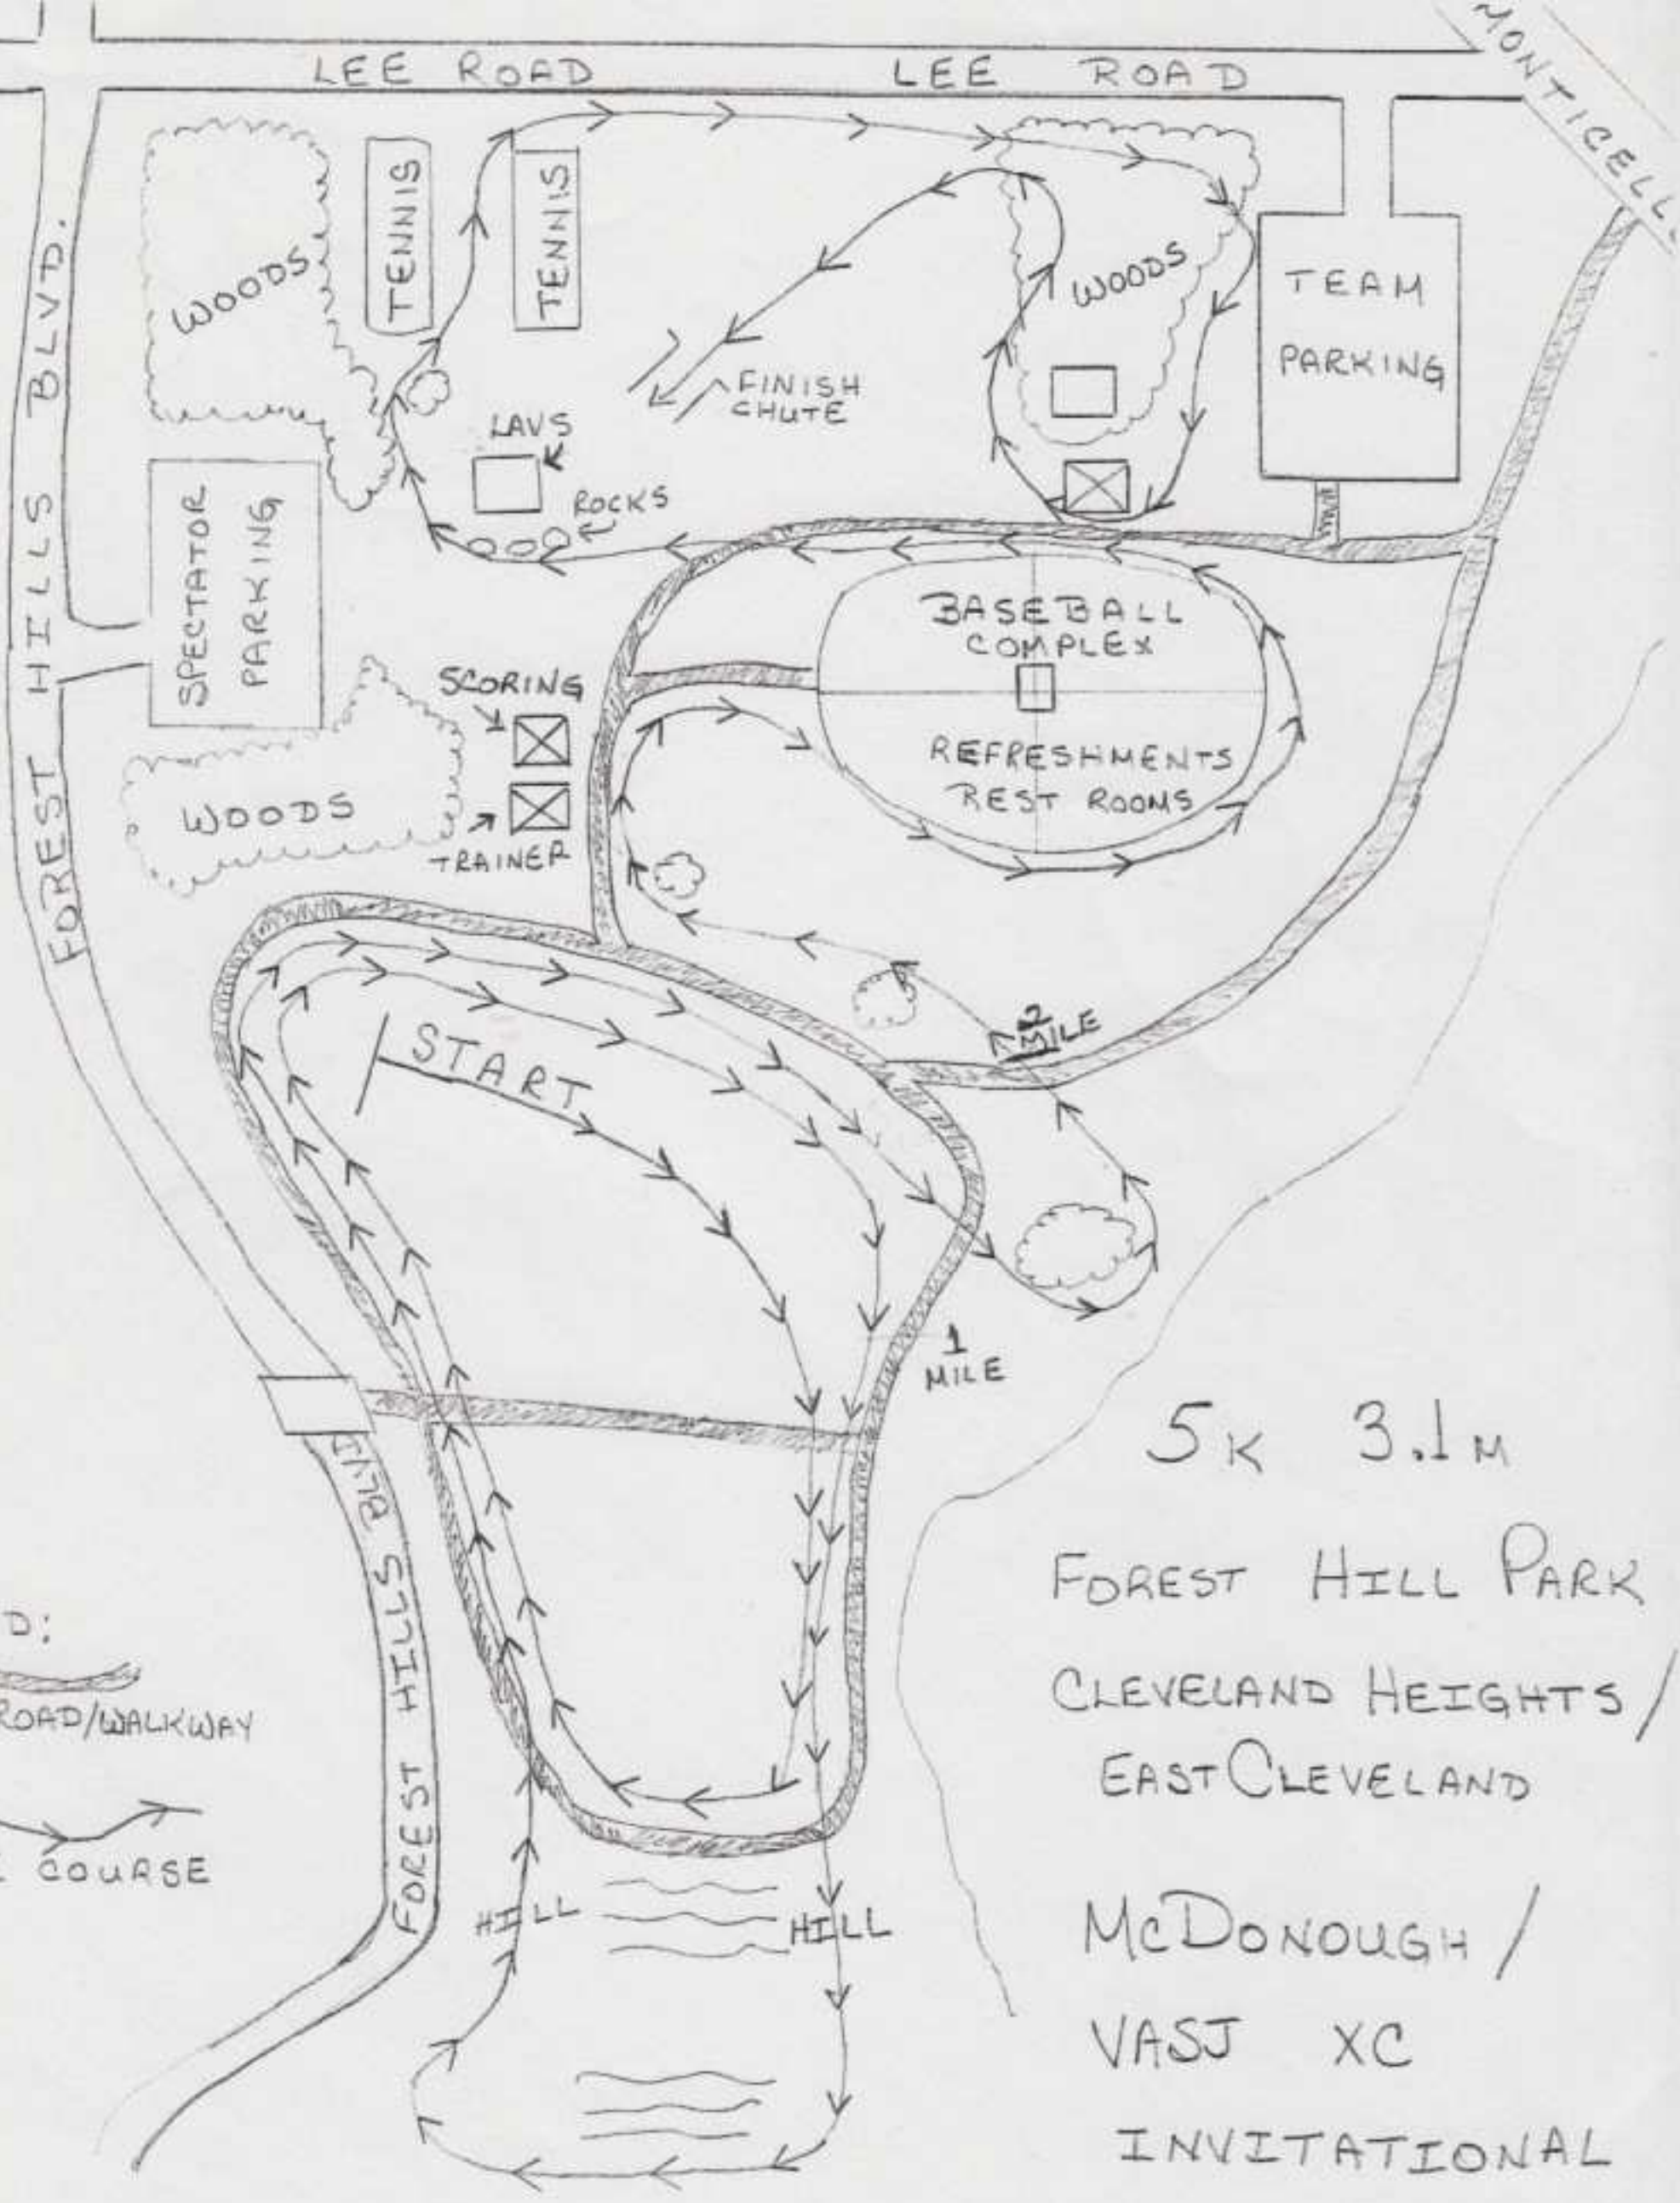 LEE ROAD
LEE ROAD
MONTICELL
FOREST HILLS BLVD.
WOODS
TENNIS
TENNIS
WOODS
TEAM
PARKING
FINISH
CHUTE
LAVS
ROCKS
SPECTATOR
PARKING
BASEBALL
COMPLEX
REFRESHMENTS
REST ROOMS
SCORING
TRAINER
WOODS
START
2
MILE
1
MILE
FOREST HILLS BLVD
HILL
HILL
D:
ROAD/WALKWAY
COURSE
5K 3.1M
FOREST HILL PARK
CLEVELAND HEIGHTS/
EAST CLEVELAND
McDONOUGH/
VASJ XC
INVITATIONAL